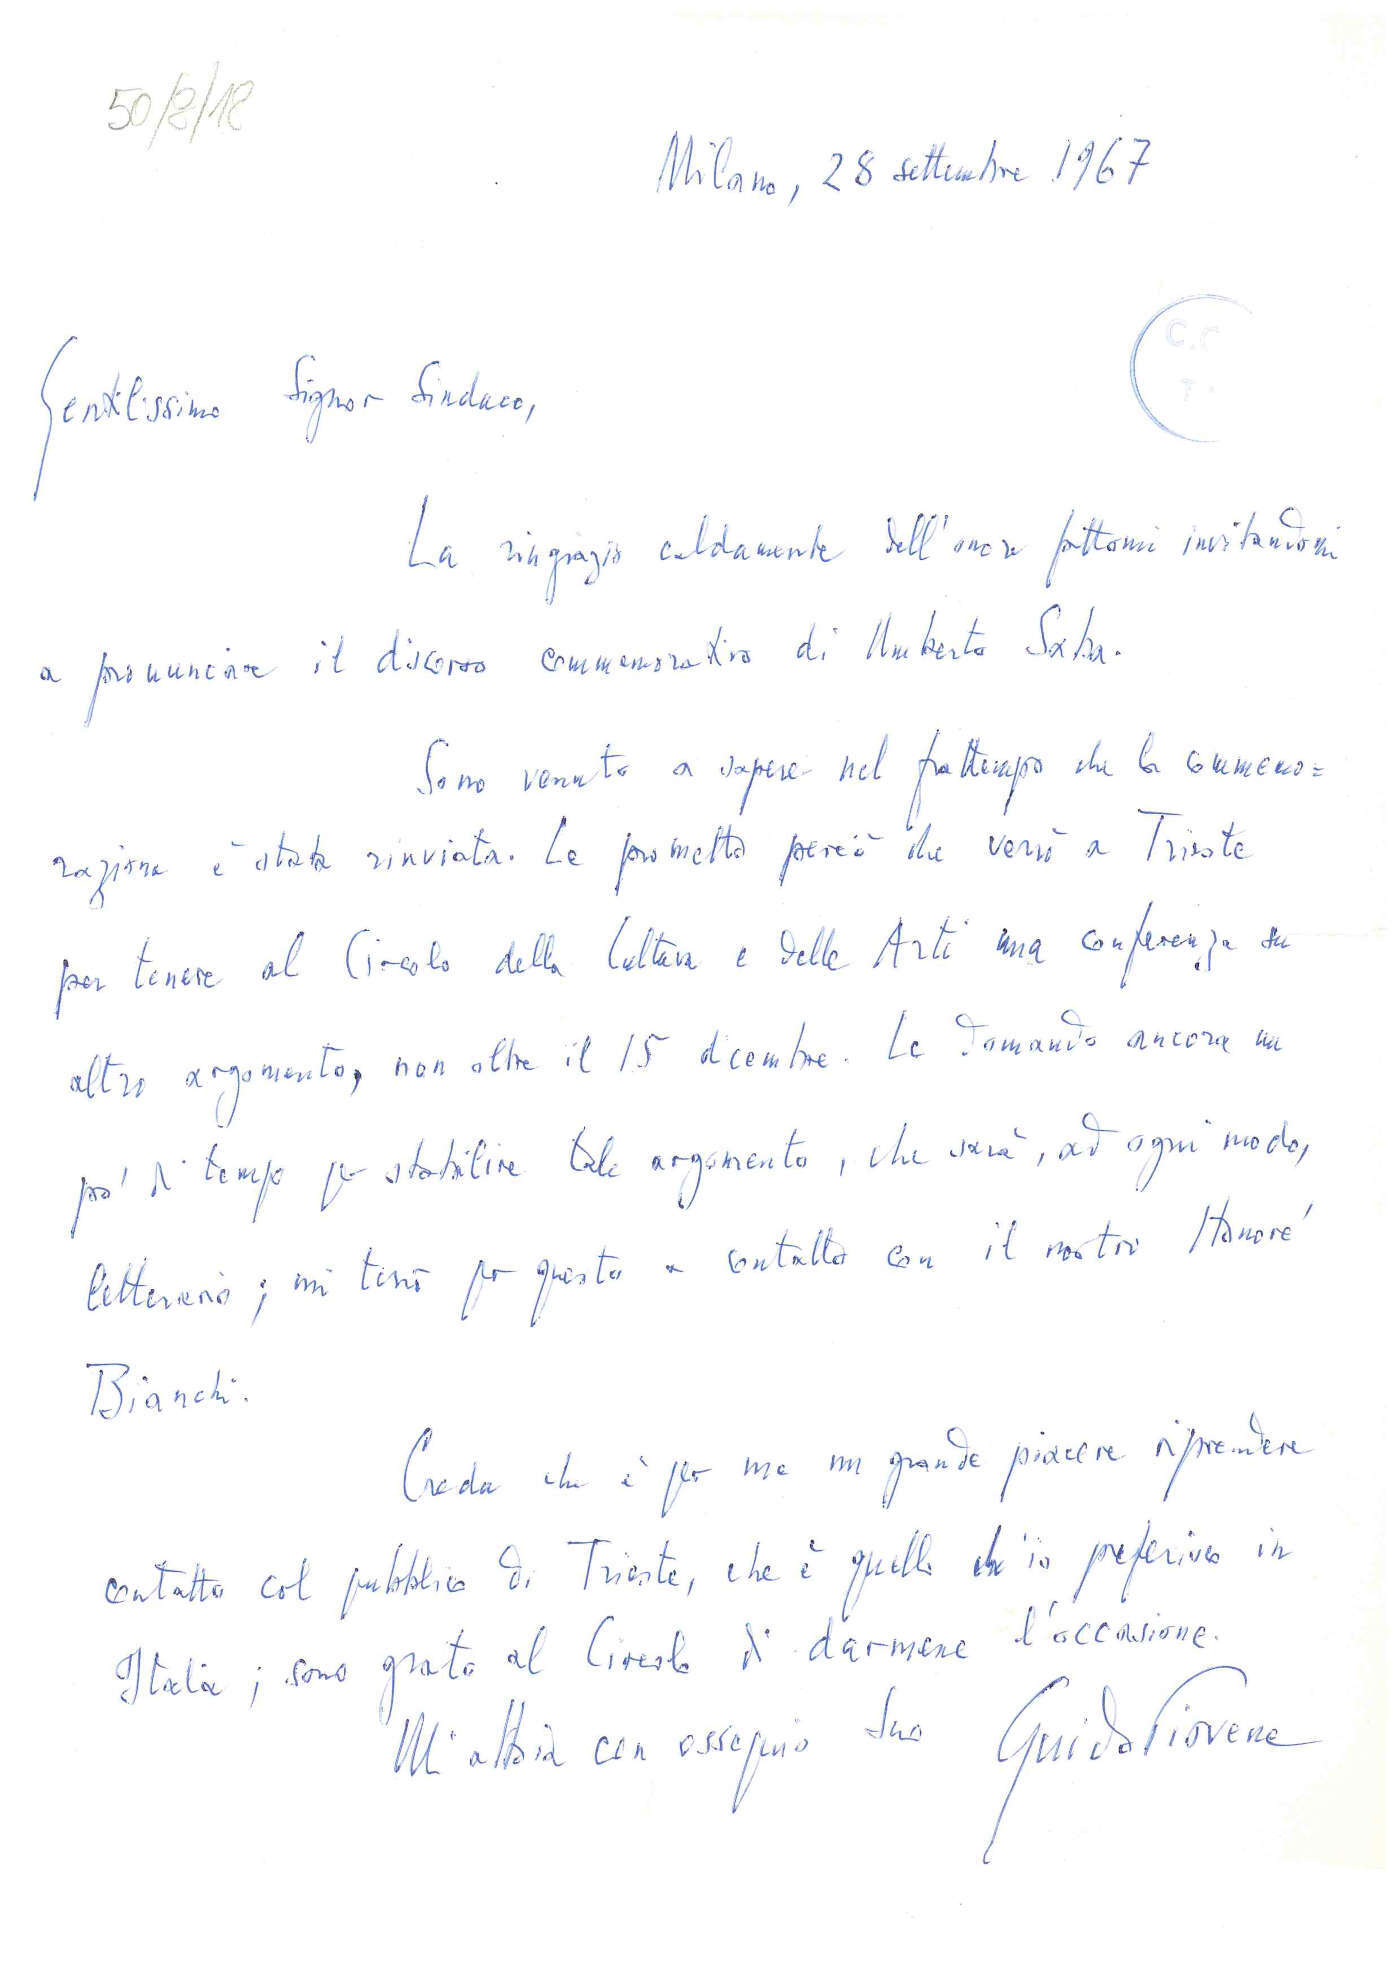 50/8/18
Milano, 28 settembre 1967
C.C
T.
Gentilissimo Signor Sindaco,
La ringrazio caldamente dell'onore fattomi invitandomi
a pronunciare il discorso commemorativo di Umberto Saba.
Sono venuto a sapere nel frattempo che la commemo=
razione è stata rinviata. Le prometto perciò che verrò a Trieste
per tenere al Circolo della Cultura e delle Arti una conferenza su
altro argomento, non oltre il 15 dicembre. Le domando ancora un
po' di tempo per stabilire tale argomento, che sarà, ad ogni modo,
letterario; mi terrò per questo a contatto con il nostro Honoré
Bianchi.
Creda che è per me un grande piacere riprendere
contatto col pubblico di Trieste, che è quello ch'io preferisco in
Italia; sono grato al Circolo di darmene l'occasione.
Mi abbia con ossequio Suo Guido Piovene